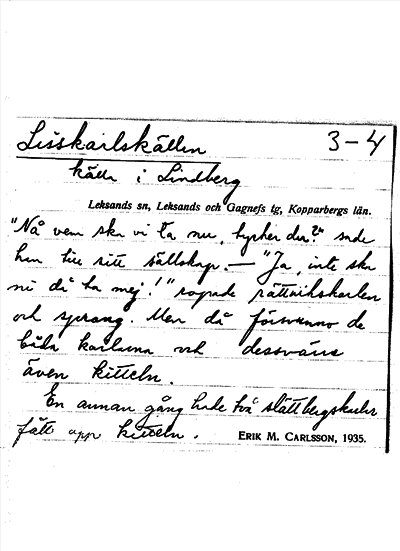 Lisskarlskällan 3-4
källa i Lindberg
Leksands sn, Leksands och Gagnefs tg, Kopparbergs län.
"Nå vem ska vi ta nu, tycker du?" sade
han till sitt sällskap. – "Ja, inte ska
ni då ta mej!" ropade rättvikskarlen
och sprang. Men då försvunno de
båda karlarna och dessvärre
även kitteln.
En annan gång hade två slättbergskullor
fått upp kitteln. ERIK M. CARLSSON, 1935.